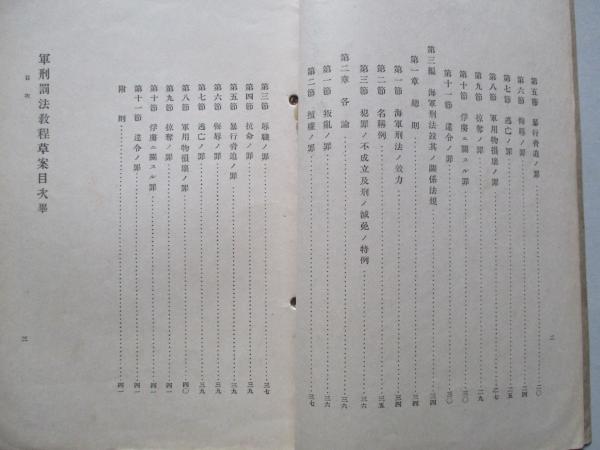 第五節 暴行脅迫ノ罪 二〇
第六節 侮辱ノ罪 二四
第七節 逃亡ノ罪 二五
第八節 軍用物損壞ノ罪 二七
第九節 掠奪ノ罪 二九
第十節 俘虜ニ關スル罪 三〇
第十一節 違令ノ罪 三〇
第三編 海軍刑法竝其ノ關係法規 三四
第一章 總則 三四
第一節 海軍刑法ノ效力 三四
第二節 名稱例 三五
第三節 犯罪ノ不成立及刑ノ減免ノ特例 三六
第二章 各論 三六
第一節 叛亂ノ罪 三六
第二節 擅權ノ罪 三七
二
第三節 辱職ノ罪 三七
第四節 抗命ノ罪 三九
第五節 暴行脅迫ノ罪 三九
第六節 侮辱ノ罪 三九
第七節 逃亡ノ罪 三九
第八節 軍用物損壞ノ罪 四〇
第九節 掠奪ノ罪 四一
第十節 俘虜ニ關スル罪 四一
第十一節 違令ノ罪 四一
附則 四一
軍刑罰法敎程草案目次畢
目次
三